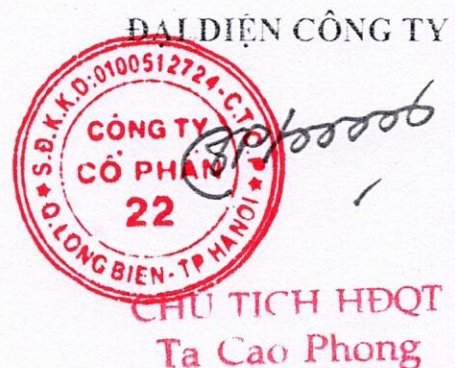 ĐẠI DIỆN CÔNG TY
S.Đ.K.K.D:0100512724-C.T.C.P
CÔNG TY
CỔ PHẦN
22
Q.LONG BIÊN-TP HÀ NỘI
CHỦ TỊCH HĐQT
Ta Cao Phong